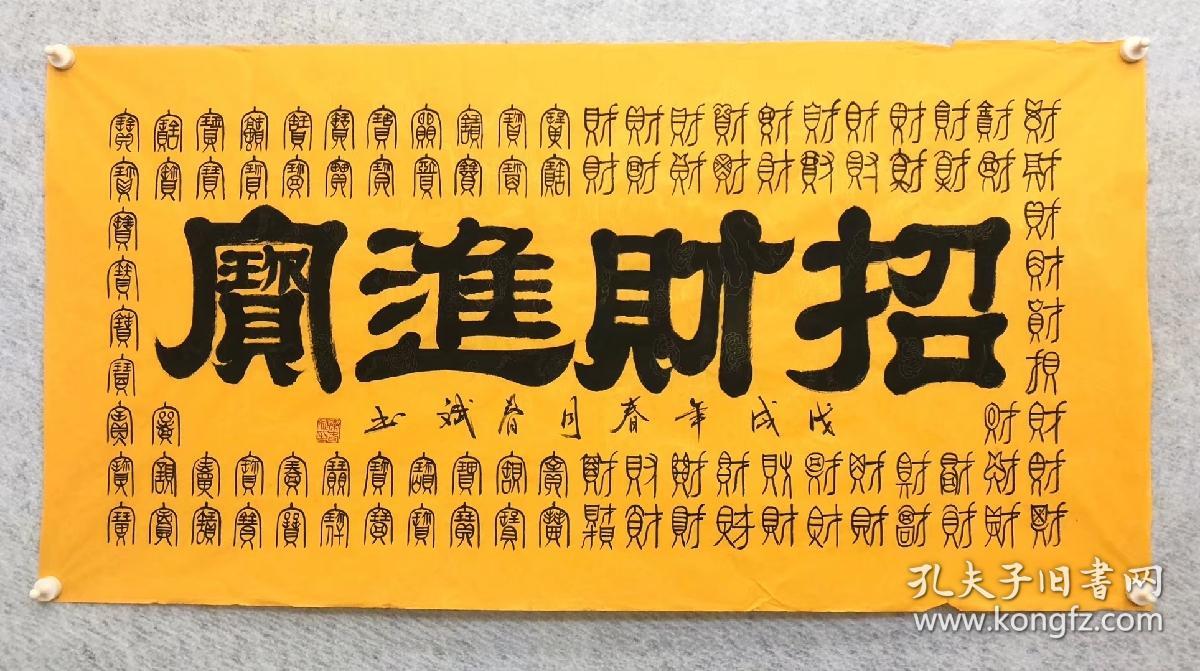 財財財財財財財財財財財寶寶寶寶寶寶寶寶寶寶寶
財財財財財財財財財財財寶寶寶寶寶寶寶寶寶寶寶
財財財財財
財
招財進寶
戊戌年春月斌书
寶
寶寶寶寶寶
財財財財財財財財財財財寶寶寶寶寶寶寶寶寶寶寶
財財財財財財財財財財財寶寶寶寶寶寶寶寶寶寶寶
孔夫子旧书网
www.kongfz.com